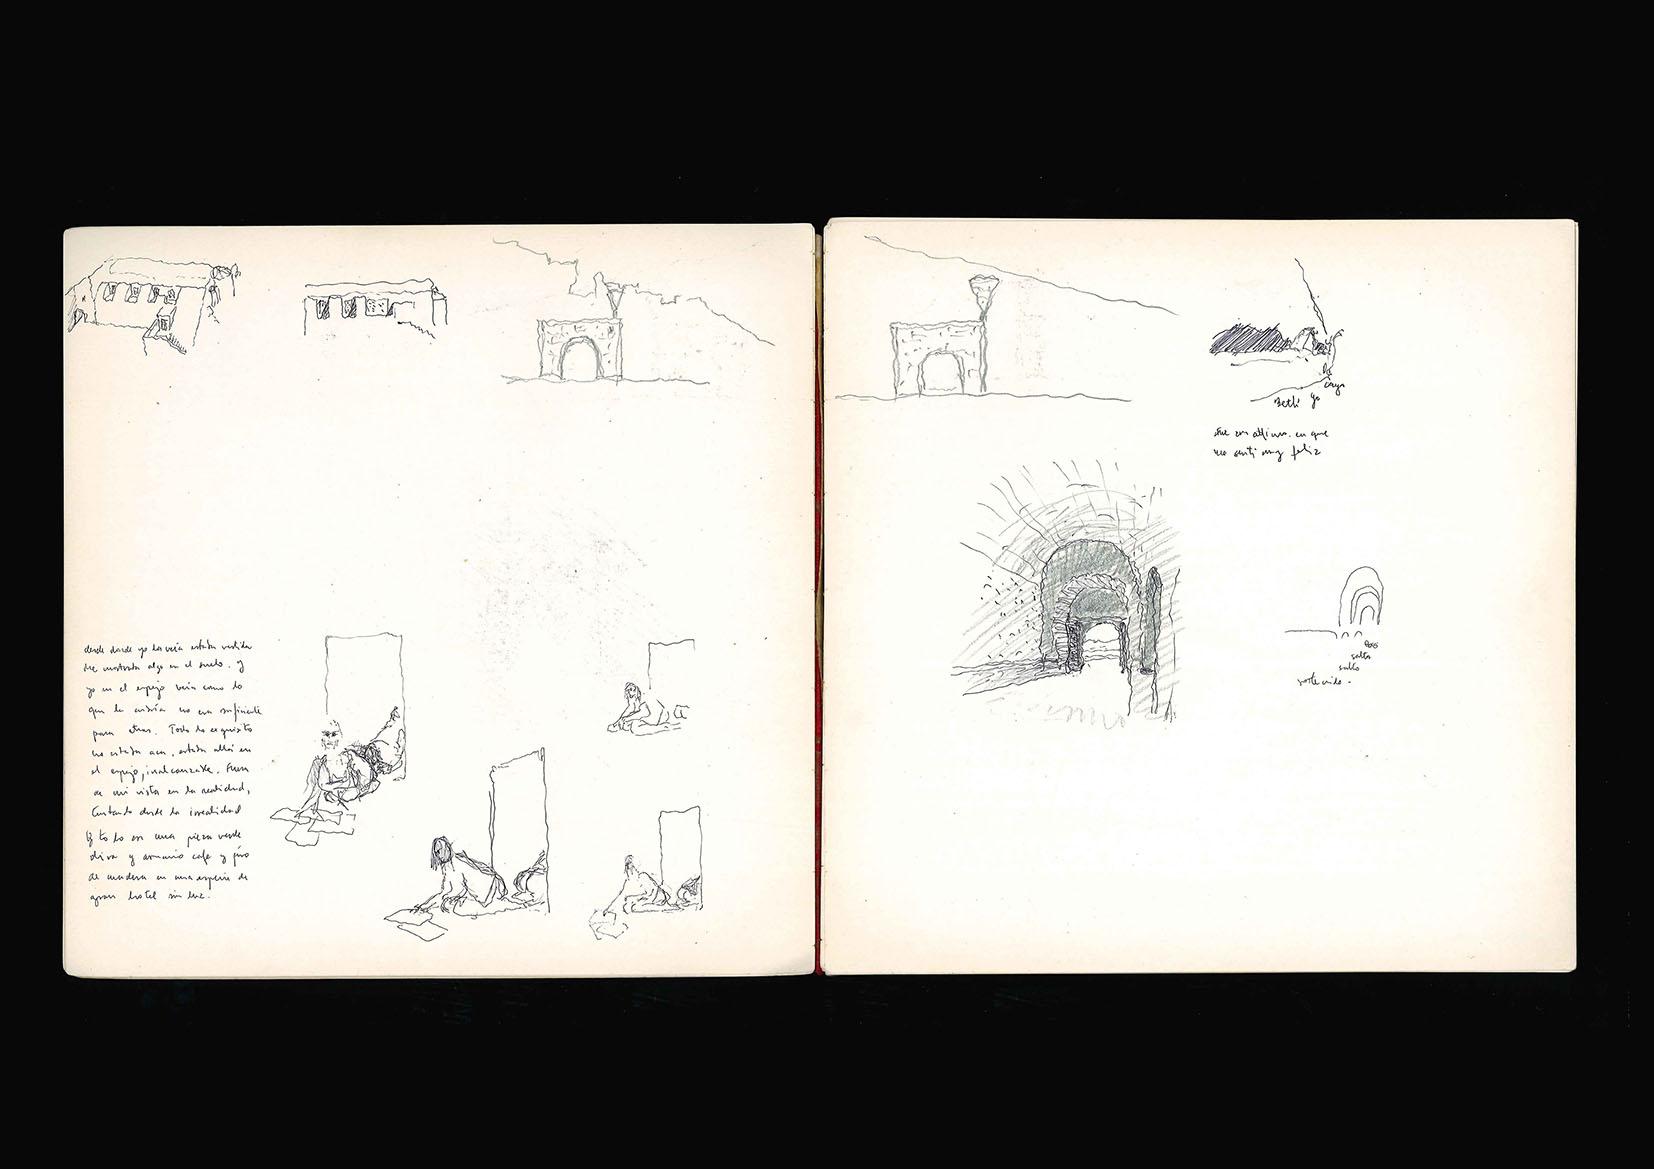 desde donde yo la veía estaba vestida
me mostraba algo en el suelo. y
yo en el espejo veía como lo
que la cubría no era suficiente
para atras. Todo lo exquisito
no estaba aca, estaba allá en
el espejo, inalcanzable. Fuera
de mi vista en la realidad,
desde la irrealidad
en una pieza verde
y armario cafe y piso
de madera en una especie de
gran hotel sin luz.
Betti yo
en que
me senti muy feliz
salto
salto
sostenido.